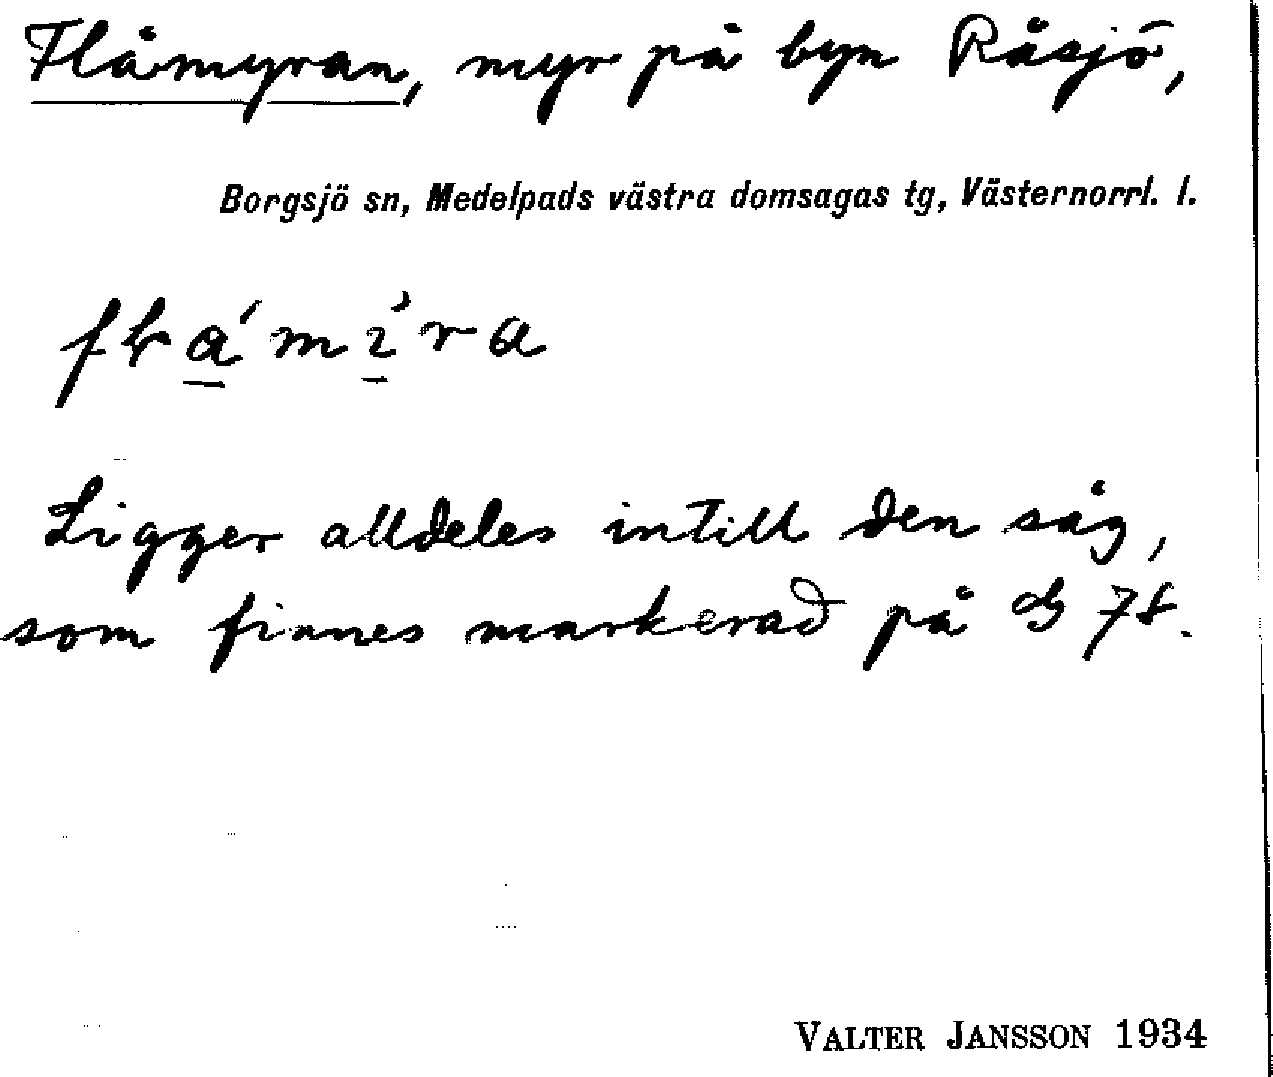 Flåmyran, myr på byn Råsjö,
Borgsjö sn, Medelpads västra domsagas tg, Västernorrl. l.
Ligger alldeles intill den såg,
som finnes markerad på
VALTER JANSSON 1934